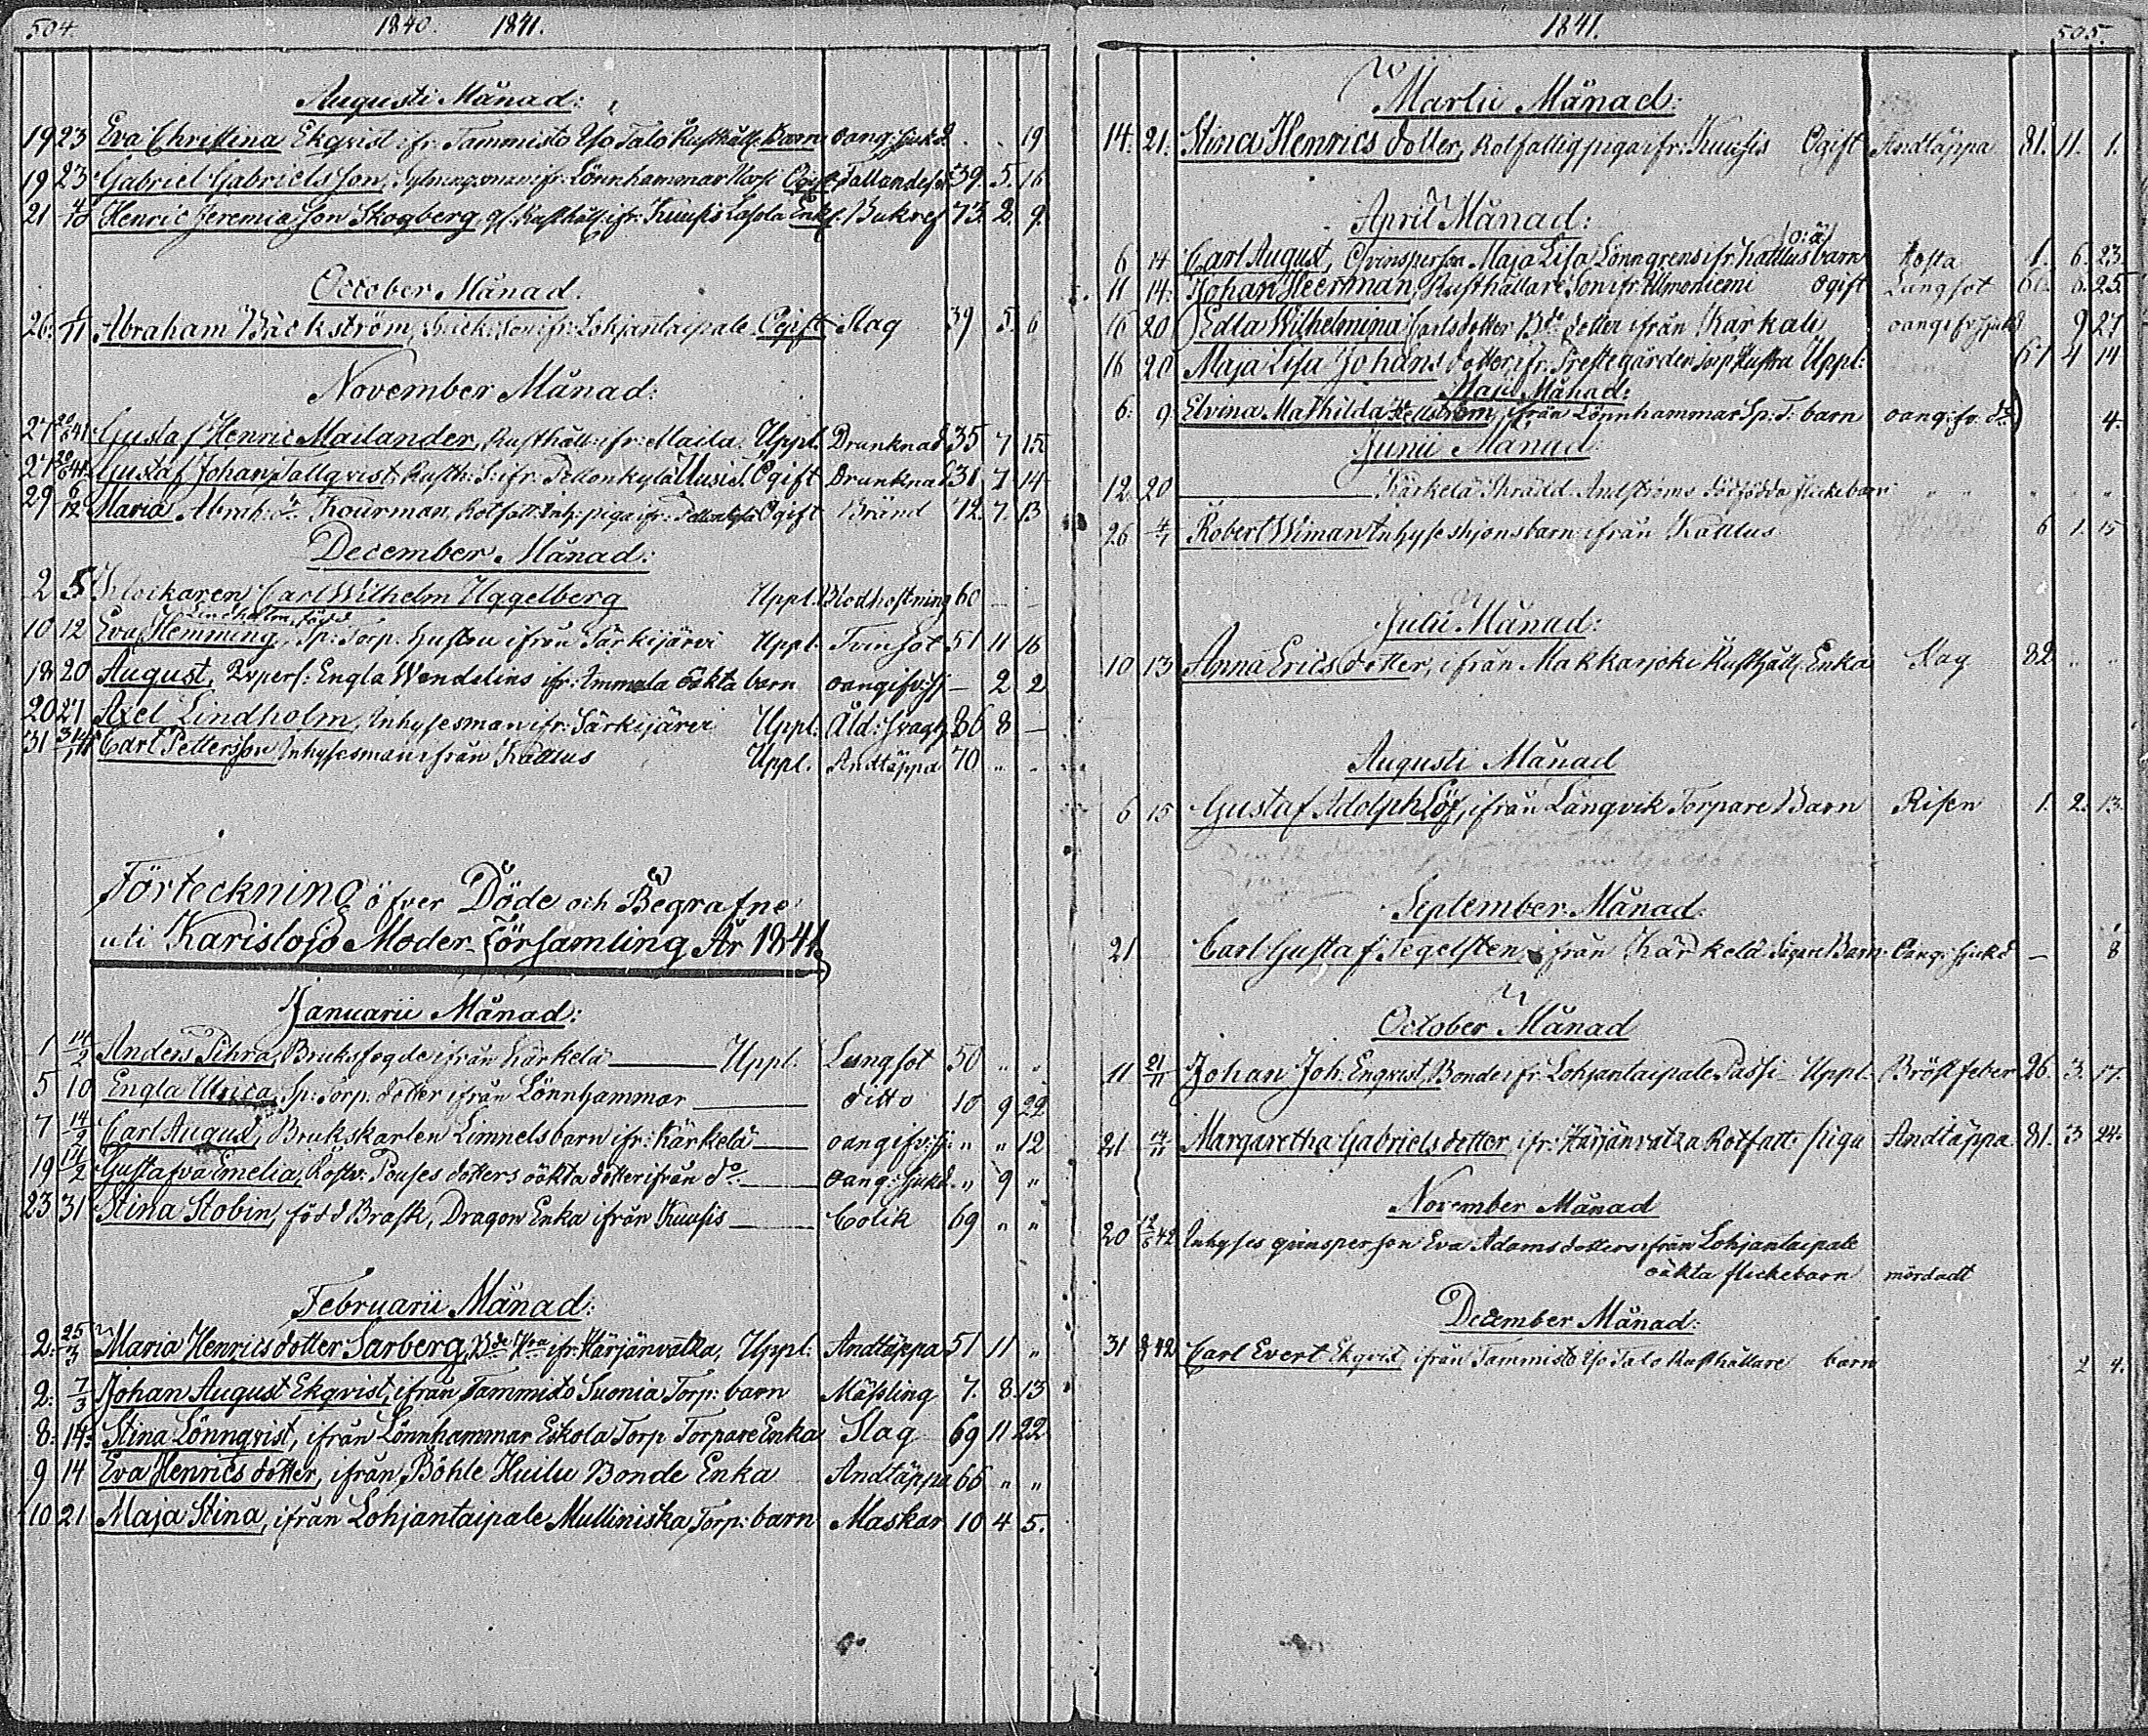 504. 1840. 1841.
Augusti Månad:
19 23 Eva Christina Ekqvist ifr. Tammisto Yso Talo Rusthåll: Barn oang: sjukd. . . 19
19 23 Gabriel Gabrielsson, ifr Lönnhammar Ogift Fallandesot 39. 5. 16
21 4/10 Henric Jeremiasson Skogberg, gl. Rusthåll: ifr: Kuusis Lassola Enkl. Bukref 73. 2. 9.
October Månad.
26. 1/11 Abraham Bäckström, son ifr: Lohjantaipale Ogift Slag 39 5. 6
November Månad:
27 20/6 41. Gustaf Henric Mailander, Rusthåll: ifr: Maila. Uppl. Drunknad 35 7 15.
27 20/6 41. Gustaf Johan Tallqvist, Rusth: S: ifr: Pellonkylä Uusid. Ogift Drunknad 31 7 14
29 6/12 Maria Abrah: dr. Kourman, Rotfatt: Inh: piga ifr: Pellonkylä Ogift Bränd 72. 7. 13
December Månad:
2 5 Klockaren Carl Wilhelm Uggelberg Uppl. Blodhostning 60 – –
Lindholm, född
10 12 Eva Hemming, Sp: Torp. hustru ifrån Särkijärvi Uppl: Tvinsot 51 11 16
18 20 August, Qvpers: Engla Wendelins ifr: Immola oäkta barn oangifv: sj – 2 2
20 27 Axel Lindholm, Inhysesman ifr: Särkijärvi Uppl: Åld: svagh. 86 8 –
31 3/1 41 Carl Pettersson Inhysesman ifrån Kattlus Uppl. Andtäppa 70 " "
Förteckning öfver Döde och Begrafne
uti Karislojo Moder-Församling År 1841.
Januarii Månad:
1 14/2 Anders Pihra, Bruksfogde ifrån Kärkelä Uppl. Lungsot 50 " "
5 10 Engla Ulrica, Sp: Torp. dotter ifrån Lönnhammar ditto 10 9 22
7 14/2 Carl August, Brukskarlen Limnels barn ifr: Kärkelä oangifv: sj: " " 12
19 14/2 Gustafva Emelia, dotters oäkta dotter ifrån do. oang: sjukd. " 9 "
23 31 Stina Stobin, född Brask, Dragon Enka ifrån Kuusis Colik 69 " "
Februarii Månad:
2. 25/3 Maria Henricsdotter Sarberg, Bde Hra ifr: Härjänvatsa, Uppl: Andtäppa 51 11 "
2: 7/3 Johan August Ekqvist, ifrån Tammisto Suonia Torp: barn Mässling 7. 8. 13
8: 14: Stina Lönnqvist, ifrån Lönnhammar Eskola Torp Torpare Enka Slag 69 11 22
9 14 Eva Henrics dotter, ifrån Böhle Huilu Bonde Enka Andtäppa 66 " "
10 21 Maja Stina, ifrån Lohjantaipale Mulliniska Torp: barn Maskar 10 4 5.
1841. 505.
Martii Månad:
14. 21. Stina Henrics dotter, Rotfattig piga ifr: Kuusis Ogift Andtäppa 81. 11. 1.
April Månad:
6 14 Carl August, Qvinsperson Maja Lisa Lönngrens ifr. Kattlus barn Hosta 1. 6. 23
/o:ä/
11 14. Johan Heerman, Rusthållare Son ifr: Ilmoniemi ogift Lungsot 25.
16 20 Edla Wilhelmina Carlsdotter Bde dotter ifrån Karkali oangifv: sjukd 9 27
16 20 Maja Lisa Johans dotter, ifr: Prestegården Torp Uppl: 61 4 14
Maji Månad:
6: 9. Elvina Mathilda Hellström, ifrån Lönnhammar Sp. T. barn oangifv: do 4.
Junii Månad
12. 20 Kärkelä dödfödda flickebarn " " "
26 4/7 Robert Wiman Inhyseshjonsbarn ifrån Kattlus 6 1. 15
Julii Månad:
10 13 Anna Erics dotter, ifrån Makkarjoki Rusthåll: Enka Slag 82 " "
Augusti Månad
6 15 Gustaf Adolph Löf, ifrån Långvik Torpare Barn Risen 1. 2. 13.
September Månad.
21 Carl Gustaf Tegelsten ifrån Kärkelä Barn Oang: sjukd – 8
October Månad
11 21/11 Johan Joh: Enqvist, Bonde ifr: Lohjantaipale Passi Uppl. Bröstfeber 26. 3. 17.
21 Margaretha Gabriels dotter ifr: Härjänvatsa Rotfatt: piga Andtäppa 81. 3 24.
November Månad
20 12/6 42 Inhyses qvinsperson Eva Adams dotters ifrån Lohjantaipale
oäkta flickebarn mördadt
December Månad:
31 42 Carl Evert Ekqvist, ifrån Tammisto Yso Talo Rusthållare barn 2 4.